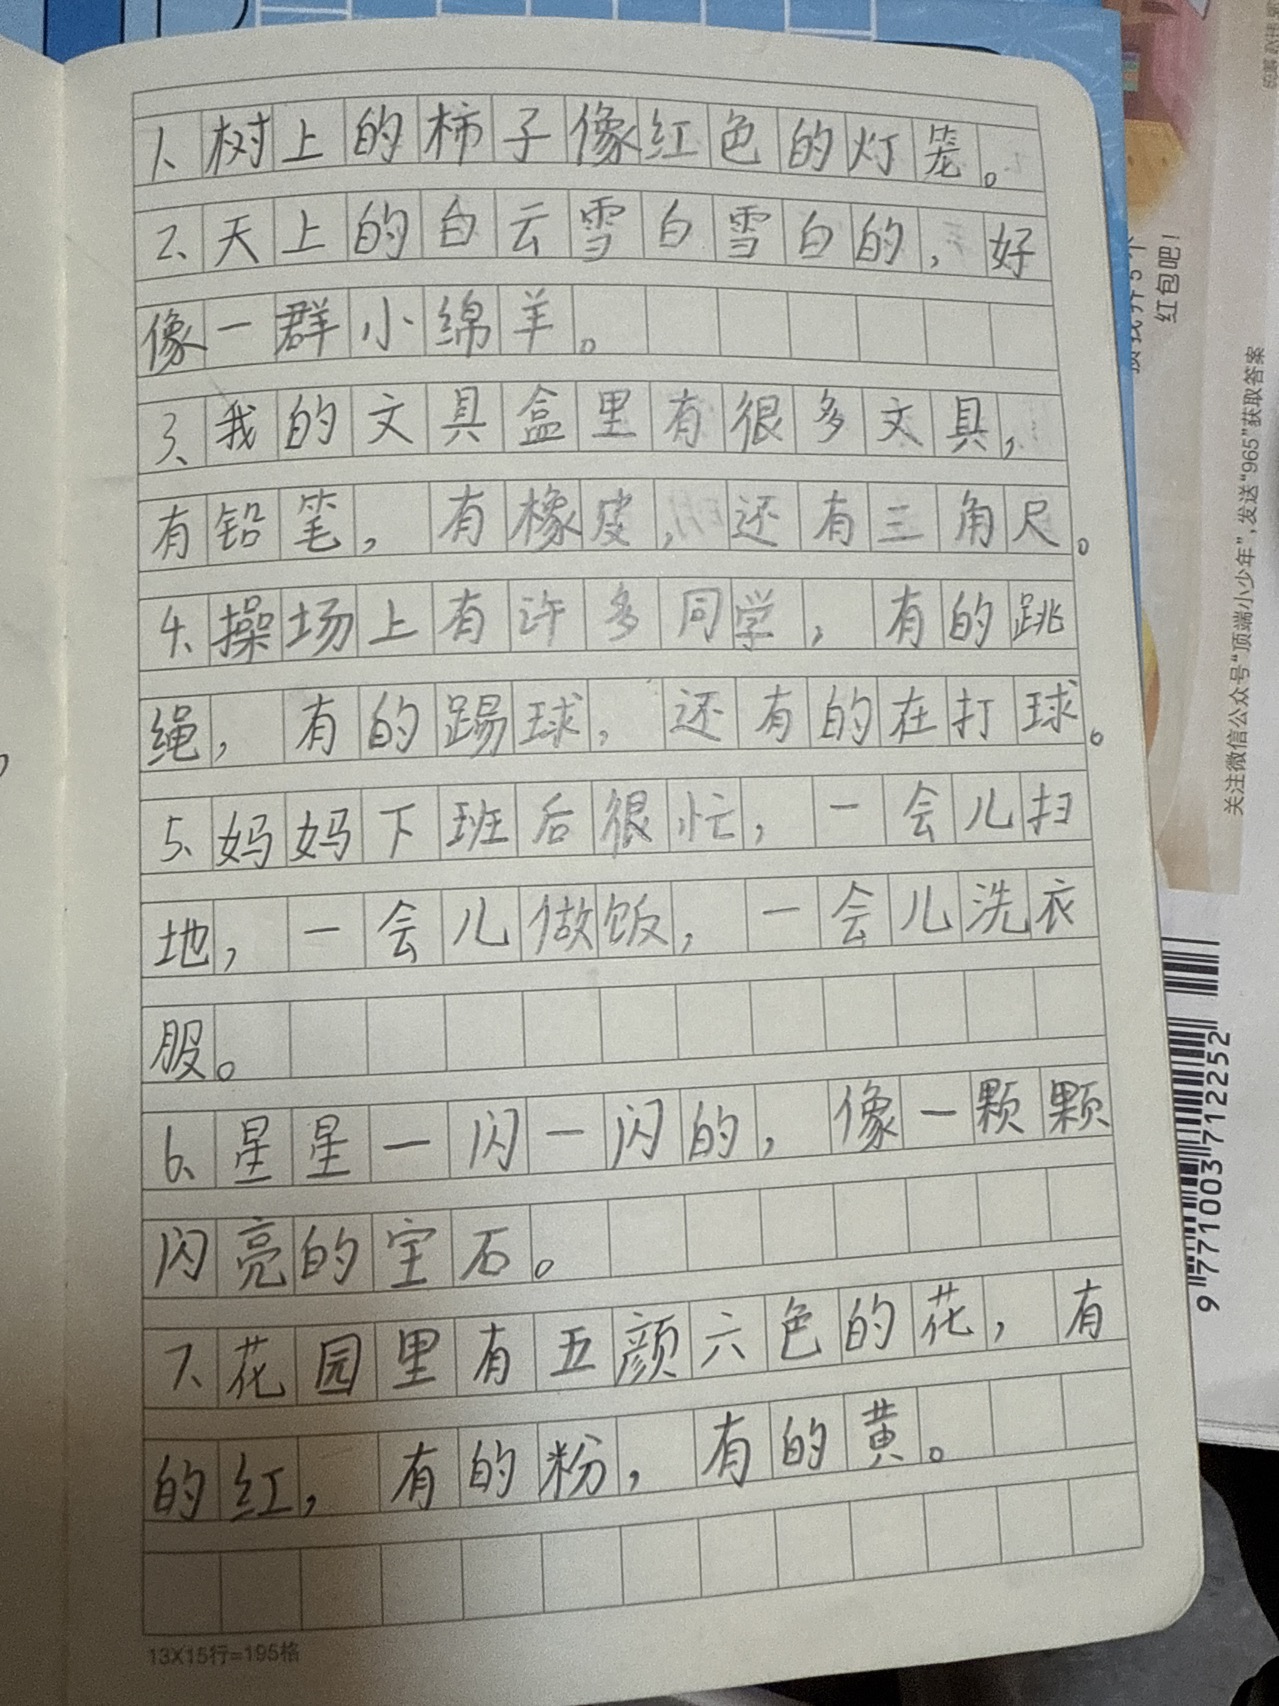 1、树上的柿子像红色的灯笼。
2、天上的白云雪白雪白的，好
像一群小绵羊。
3、我的文具盒里有很多文具，
有铅笔，有橡皮，还有三角尺。
4、操场上有许多同学，有的跳
绳，有的踢球，还有的在打球。
5、妈妈下班后很忙，一会儿扫
地，一会儿做饭，一会儿洗衣
服。
6、星星一闪一闪的，像一颗颗
闪亮的宝石。
7、花园里有五颜六色的花，有
的红，有的粉，有的黄。
13X15行=195格
红包吧！
关注微信公众号“顶端小少年”，发送“965”获取答案
9 771003 712252